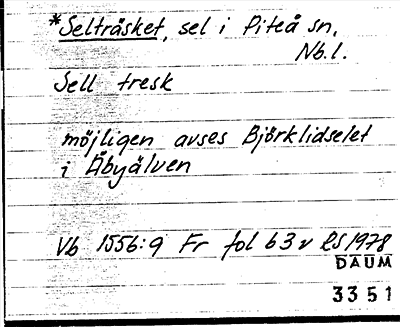 *Selträsket, sel i Piteå sn,
Nb.l.
Sell tresk
möjligen avses Björklidselet
i Åbyälven
Vb 1556:9 Fr fol 63v RS 1978
DAUM
3351